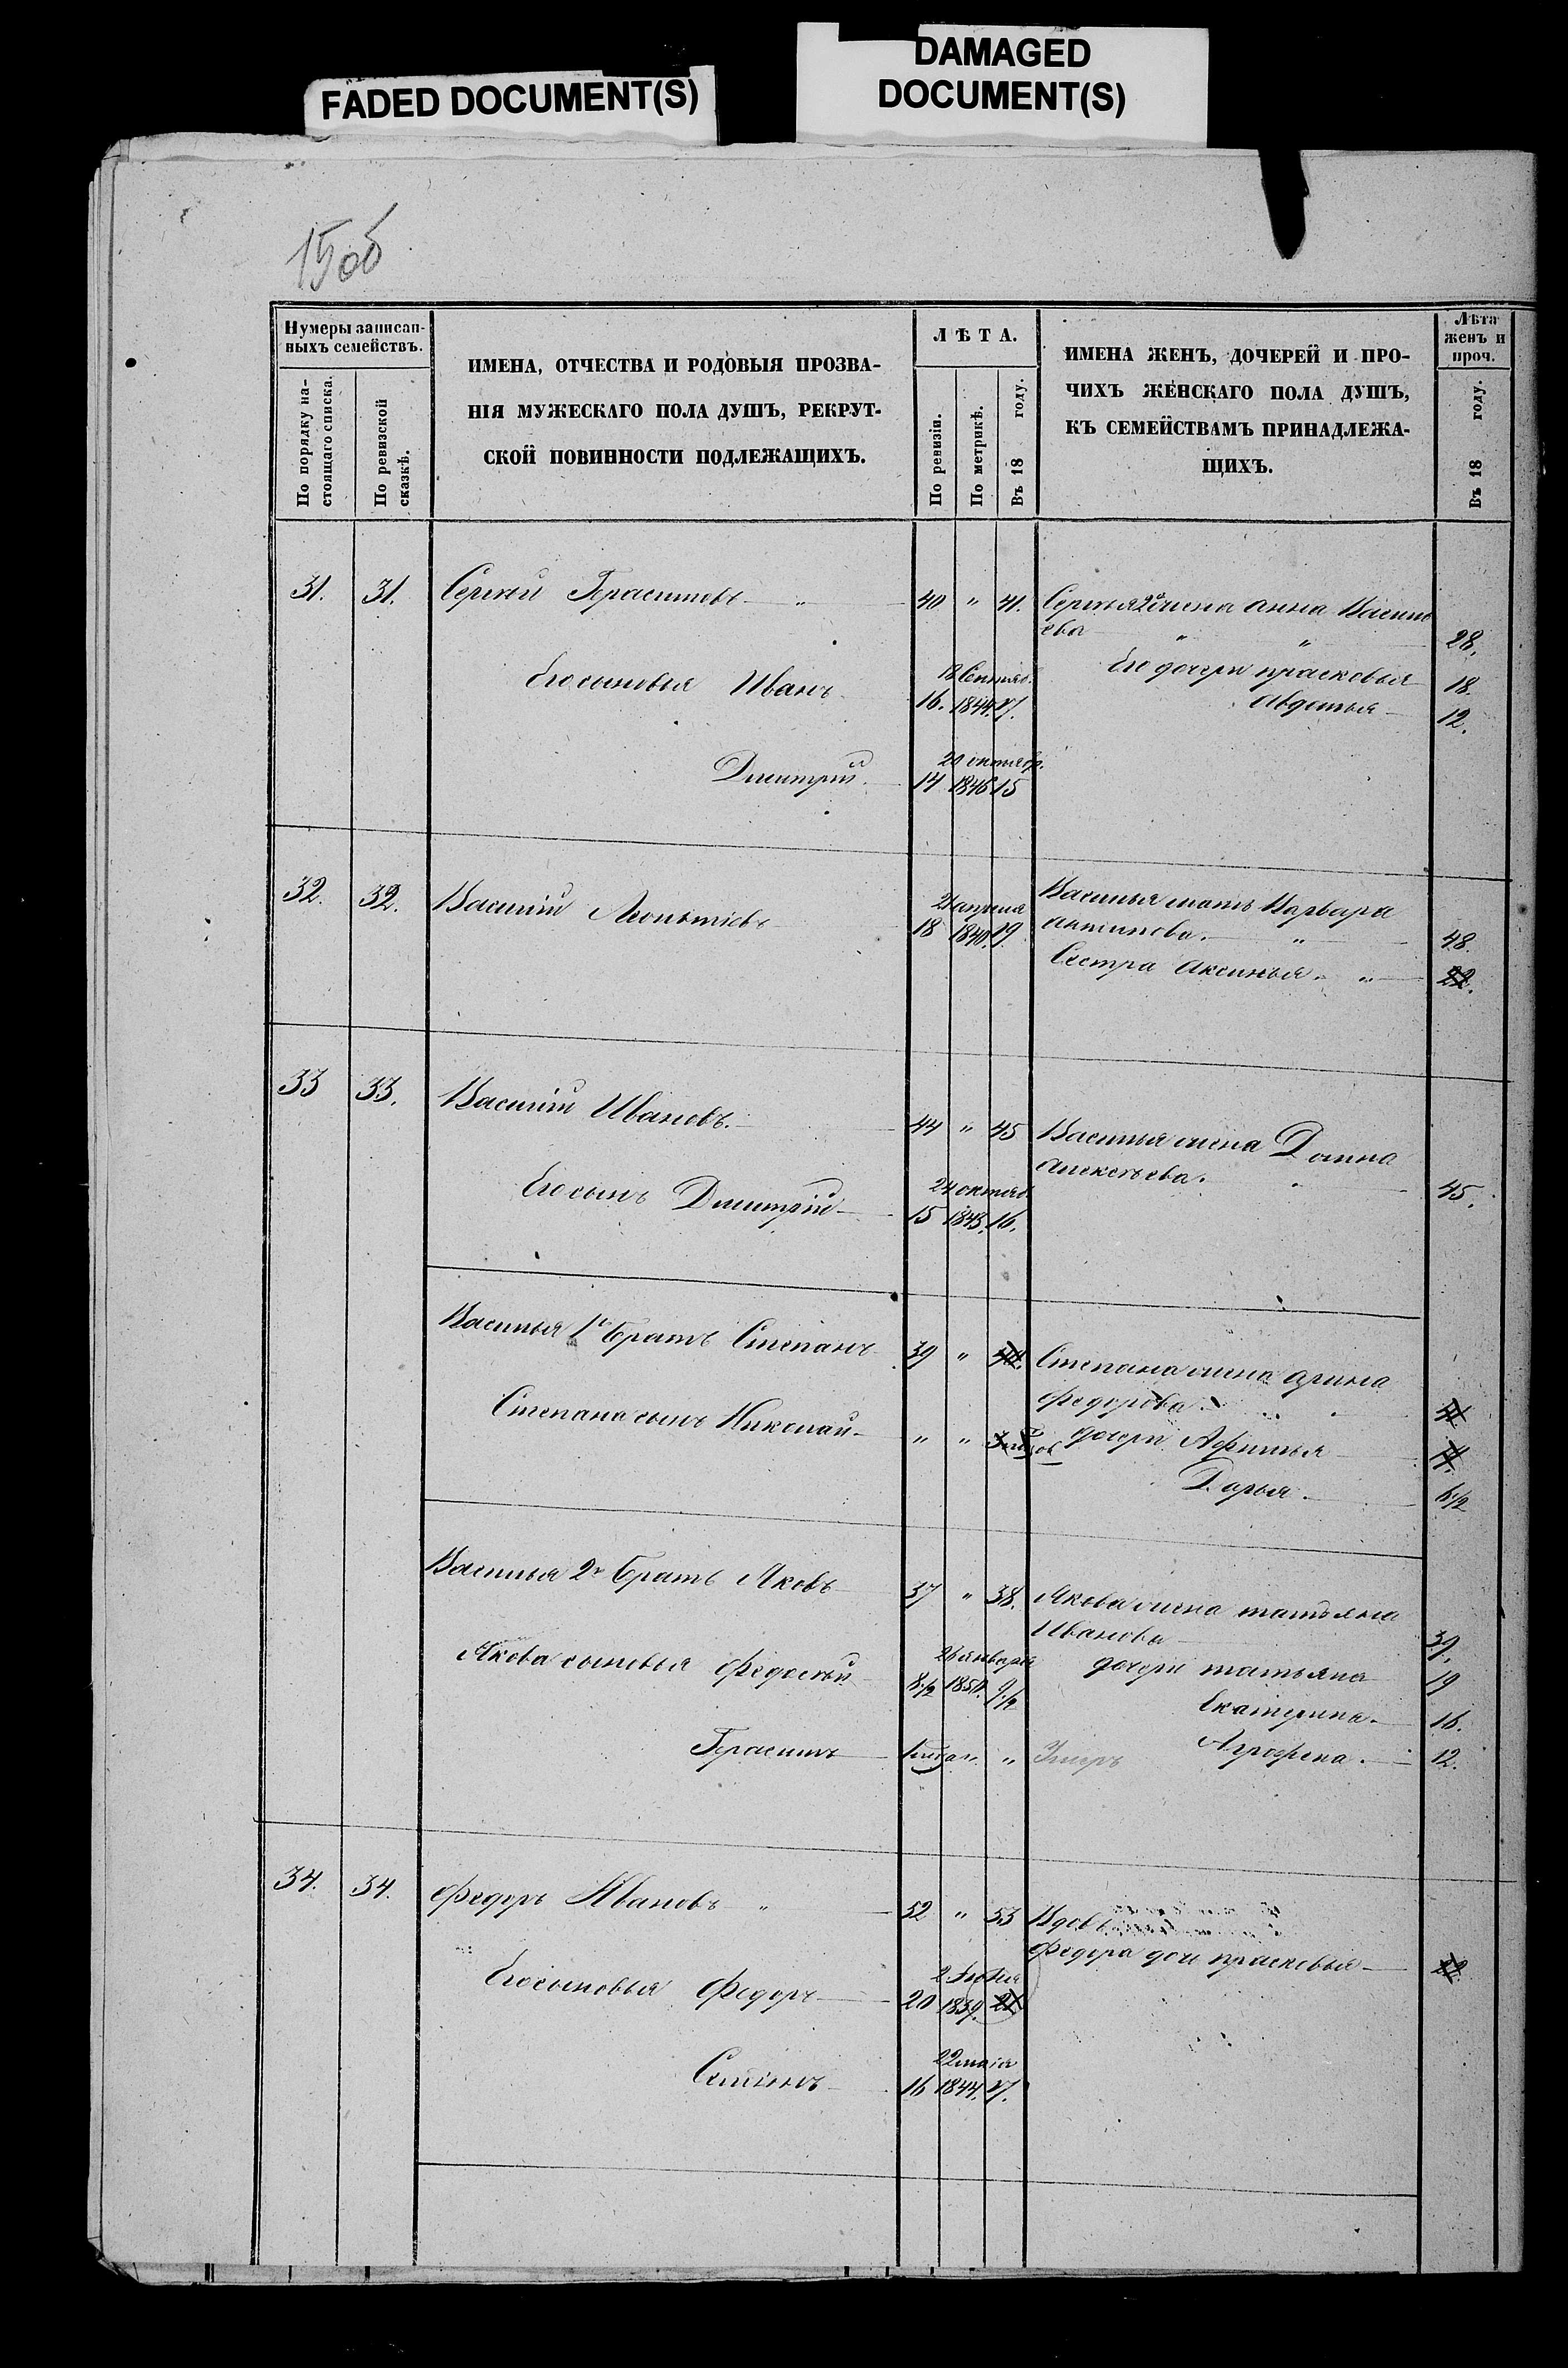 FADED DOCUMENT(S)
DAMAGED
DOCUMENT(S)
15об
Нумеры записан-
ныхъ семействъ.
По порядку на-
стоящаго списка.
По ревизской
сказкѣ.
ИМЕНА, ОТЧЕСТВА И РОДОВЫЯ ПРОЗВА-
НІЯ МУЖЕСКАГО ПОЛА ДУШЪ, РЕКРУТ-
СКОЙ ПОВИННОСТИ ПОДЛЕЖАЩИХЪ.
ЛѢТА.
По ревизіи.
По метрикѣ.
Въ 18 году.
ИМЕНА ЖЕНЪ, ДОЧЕРЕЙ И ПРО-
ЧИХЪ ЖЕНСКАГО ПОЛА ДУШЪ,
КЪ СЕМЕЙСТВАМЪ ПРИНАДЛЕЖА-
ЩИХЪ.
Лѣта
женъ и
проч.
Въ 18 году.
31. 31. Сергѣй Герасимовъ " 40 " 41. Сергѣя 2я жена анна Василь
ева " " 28.
Его сыновья Иванъ 18 Сентяб. 16. 1844. 17. Его дочери прасковья 18.
Авдотья 12.
Дмитрій. 20 октябр. 14 1846 15
32. 32. Василій Леонтіевъ 21 апреля 18 1840. 19. Василья мать Варвара
антипова. " 48.
Сестра Аксинья. " 22.
33 33. Василій Ивановъ. 44 " 45 Василья жена Домна
Алексѣева. 45.
Его сынъ Дмитрій 24 октяб. 15 1843. 16.
Василья 1й братъ Степанъ 39 " 40. Степана жена арина
Федорова.
Степана сынъ Николай " " дочери Афимья
Дарья. 6½
Василья 2й братъ Яковъ 37 " 38. Якова жена татьяна
Иванова 39.
Якова сыновья Федосѣй 26 января 8½ 1850. 9½ дочери татьяна 19
Екатерина. 16.
Герасимъ " Умеръ Агрофена. 12.
34. 34. Федоръ Ивановъ " 52 " 53 Вдов
Федора дочь прасковья 22
Его сыновья Федоръ 2 Июня 20 1839. 21
Семенъ 22 маія 16 1844. 17.